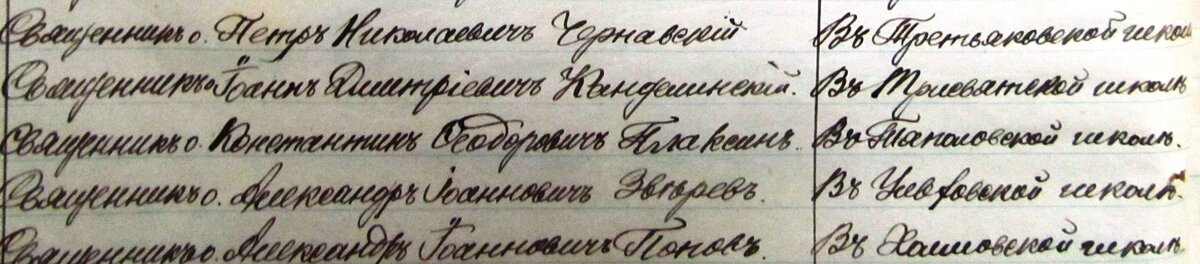 Священникъ о. Петръ Николаевичъ Чернавскій Въ Третьяковской школѣ
Священникъ о. Іоаннъ Димитріевичъ Канделинскій. Въ Трисвятской школѣ
Священникъ о. Константинъ Ѳеодоровичъ Плаксинъ. Въ школѣ.
Священникъ о. Александръ Іоанновичъ Звѣревъ. Въ школѣ.
Священникъ о. Александръ Іоанновичъ Поповъ. Въ школѣ